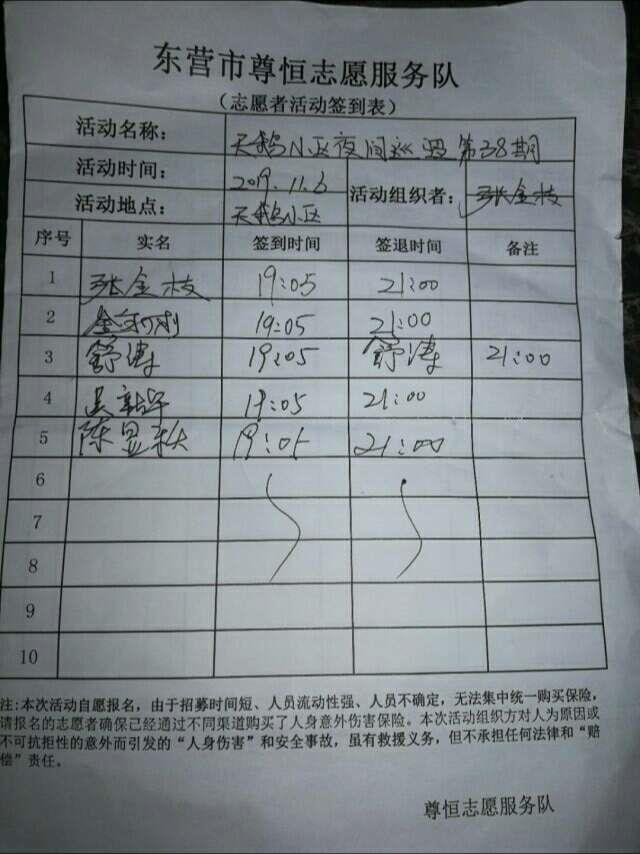 东营市尊恒志愿服务队
（志愿者活动签到表）
活动名称： 天鹅小区夜间巡逻第38期
活动时间： 2019.11.6 活动组织者： 张金枝
活动地点： 天鹅小区
序号 实名 签到时间 签退时间 备注
1 张金枝 19:05 21:00
2 19:05 21:00
3 舒涛 19:05 舒涛 21:00
4 吴新华 19:05 21:00
5 陈显秋 19:05 21:00
6
7
8
9
10
注:本次活动自愿报名，由于招募时间短、人员流动性强、人员不确定，无法集中统一购买保险，
请报名的志愿者确保已经通过不同渠道购买了人身意外伤害保险。本次活动组织方对人为原因或
不可抗拒性的意外而引发的“人身伤害”和安全事故，虽有救援义务，但不承担任何法律和“赔
偿”责任。
尊恒志愿服务队